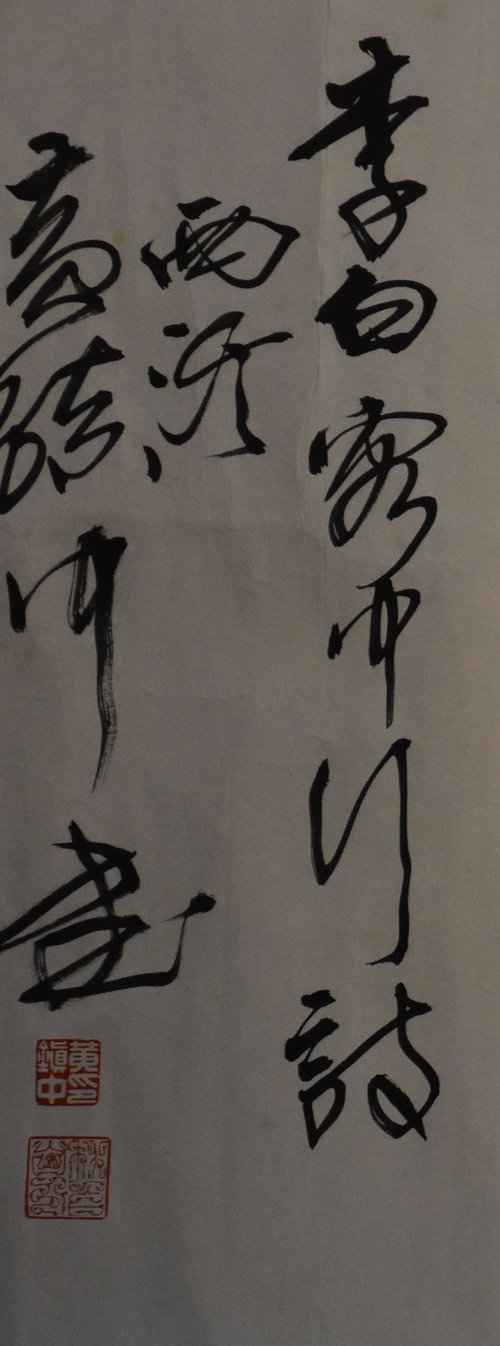 李白客中行詩
黃鎮中書
黃印
鎮中